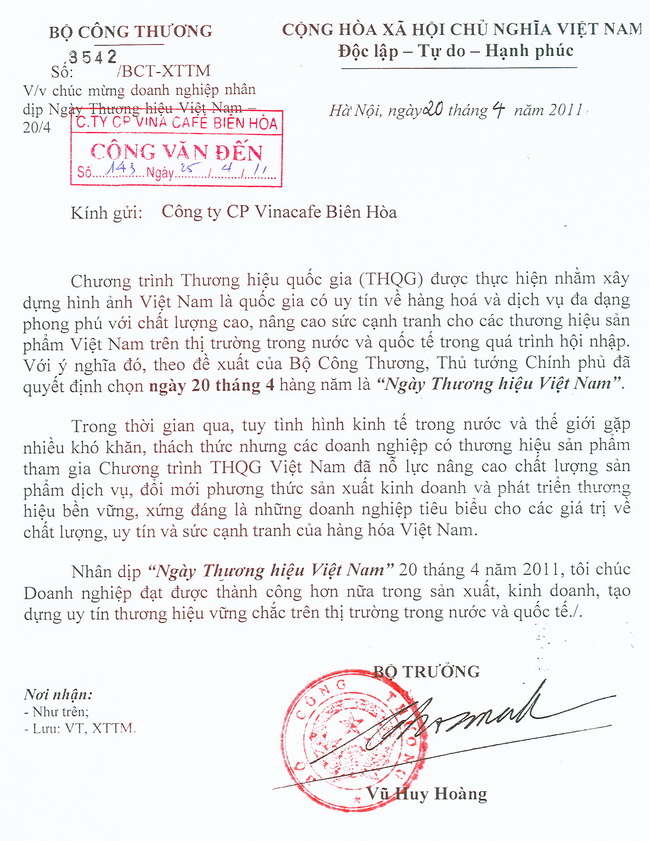 BỘ CÔNG THƯƠNG
CỘNG HÒA XÃ HỘI CHỦ NGHĨA VIỆT NAM
Độc lập – Tự do – Hạnh phúc
Số: 3542 /BCT-XTTM
V/v chúc mừng doanh nghiệp nhân
dịp Ngày Thương hiệu Việt Nam –
20/4
Hà Nội, ngày 20 tháng 4 năm 2011
C.TY CP VINA CAFE BIÊN HÒA
CÔNG VĂN ĐẾN
Số.....143...Ngày.25.../...4.../...11...
Kính gửi: Công ty CP Vinacafe Biên Hòa
Chương trình Thương hiệu quốc gia (THQG) được thực hiện nhằm xây
dựng hình ảnh Việt Nam là quốc gia có uy tín về hàng hoá và dịch vụ đa dạng
phong phú với chất lượng cao, nâng cao sức cạnh tranh cho các thương hiệu sản
phẩm Việt Nam trên thị trường trong nước và quốc tế trong quá trình hội nhập.
Với ý nghĩa đó, theo đề xuất của Bộ Công Thương, Thủ tướng Chính phủ đã
quyết định chọn ngày 20 tháng 4 hàng năm là “Ngày Thương hiệu Việt Nam”.
Trong thời gian qua, tuy tình hình kinh tế trong nước và thế giới gặp
nhiều khó khăn, thách thức nhưng các doanh nghiệp có thương hiệu sản phẩm
tham gia Chương trình THQG Việt Nam đã nỗ lực nâng cao chất lượng sản
phẩm dịch vụ, đổi mới phương thức sản xuất kinh doanh và phát triển thương
hiệu bền vững, xứng đáng là những doanh nghiệp tiêu biểu cho các giá trị về
chất lượng, uy tín và sức cạnh tranh của hàng hóa Việt Nam.
Nhân dịp “Ngày Thương hiệu Việt Nam” 20 tháng 4 năm 2011, tôi chúc
Doanh nghiệp đạt được thành công hơn nữa trong sản xuất, kinh doanh, tạo
dựng uy tín thương hiệu vững chắc trên thị trường trong nước và quốc tế./.
BỘ TRƯỞNG
Nơi nhận:
- Như trên;
- Lưu: VT, XTTM.
BỘ CÔNG THƯƠNG
Vũ Huy Hoàng